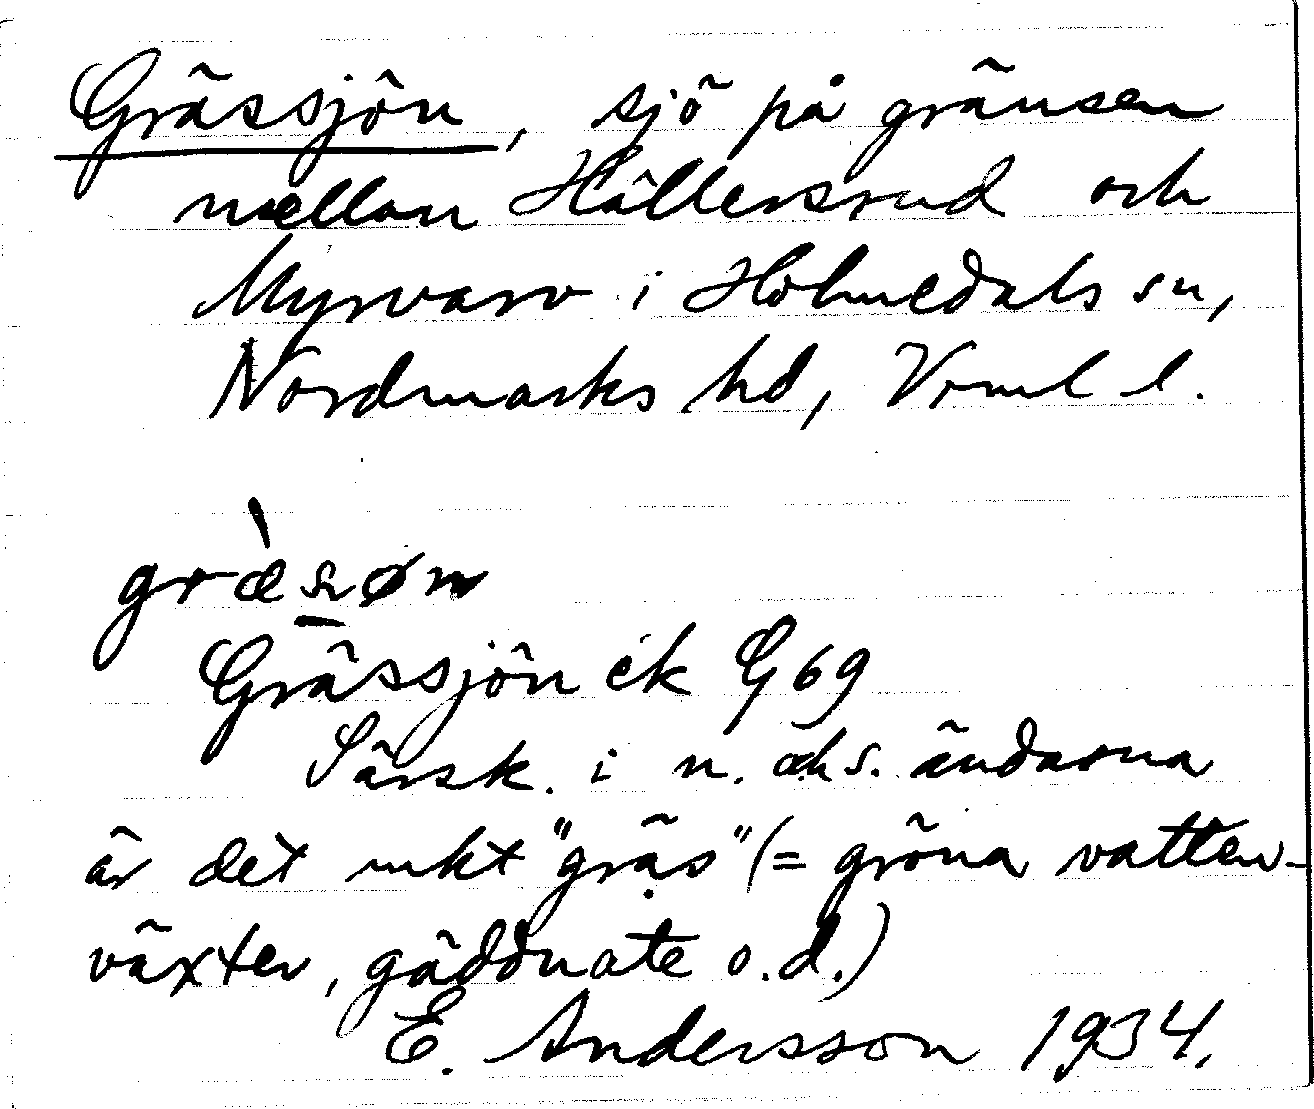 Grässjön, sjö på gränsen
mellan Hällersrud och
Myrvarv i Holmedals sn,
Nordmarks hd, Vrml l.
græ̀søn
Grässjön ek G 69
Särsk. i n. och s. ändarna
är det rikt "gräs" (= gröna vatten-
växter, gäddnate o.d.)
E. Andersson 1934.